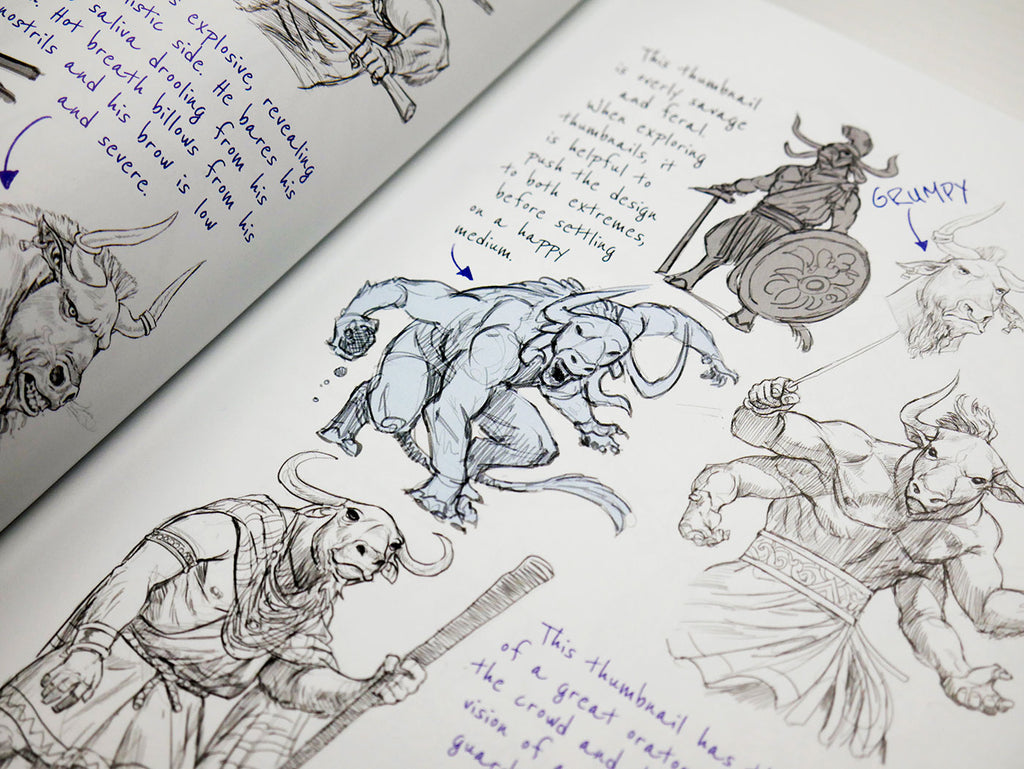 s explosive, revealing
listic side. He bares his
saliva drooling from his
Hot breath billows from his
nostrils and his brow is low
and severe.
This thumbnail
is overly savage
and feral.
When exploring
thumbnails, it
is helpful to
push the design
to both extremes,
before settling
on a happy
medium.
GRUMPY
This thumbnail has
of a great orator
the crowd and
vision of
guard